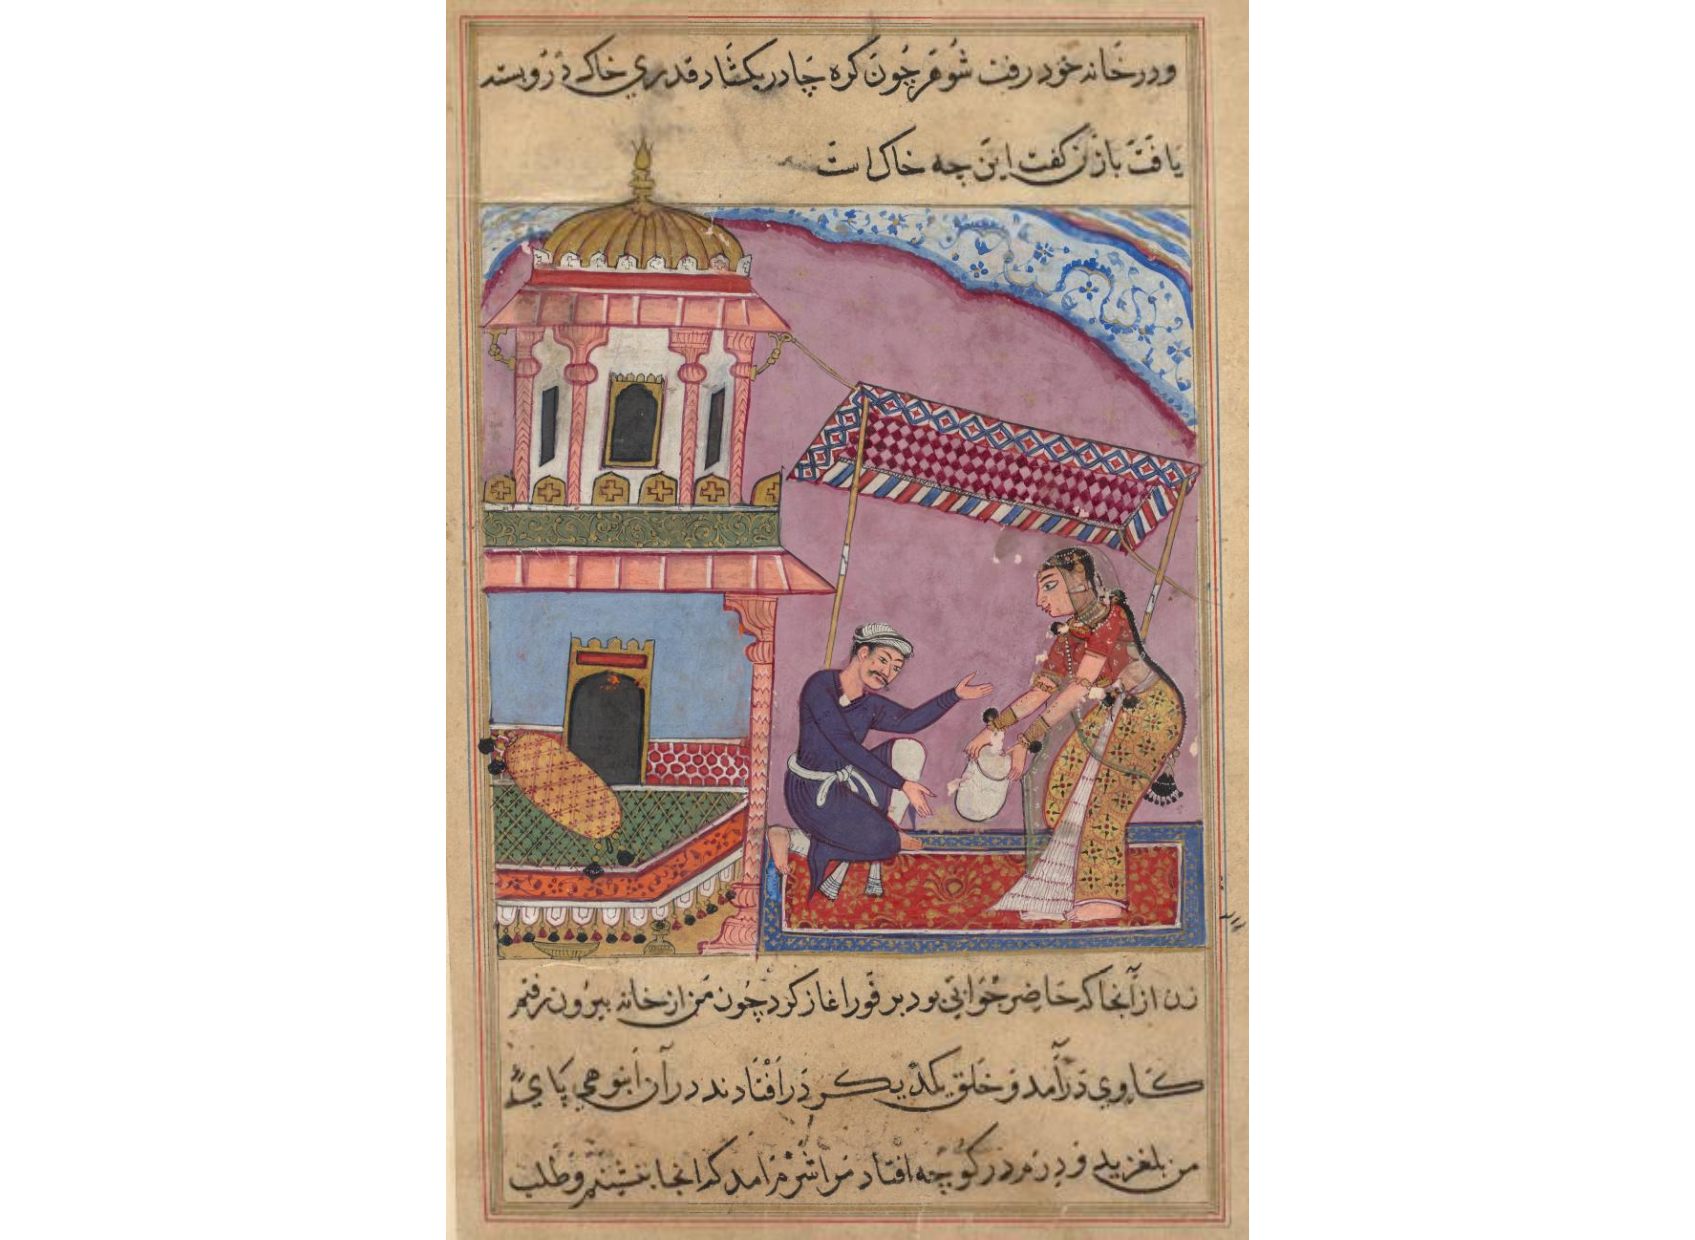 ودر خانه خود رفت شوهر چون کره چادر بکشاد قدری خاک درو بسته
یافت با زن گفت این چه خاک است
زن از آنجا که حاضر جوابی بود بر فور اغاز کرد چون من از خانه بیرون رفتم
کاوی درآمد و خلق یکدیکر درافتادند در آن انبوهی پای
من بلغزید و درم در کوچه افتاد مرا شرم آمد که انجا بنشینم و طلب